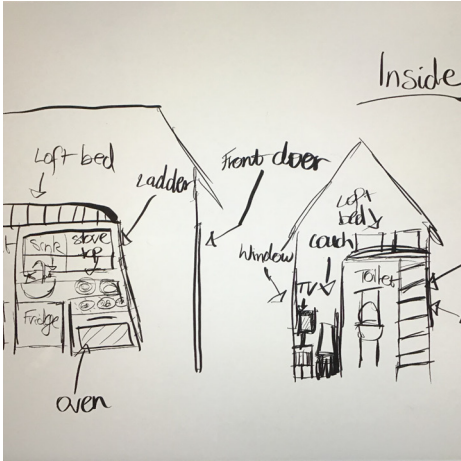 Inside
Loft bed
Ladder
Front door
Sink
stove
top
Fridge
oven
Loft
bed
Window
couch
TV
Toilet